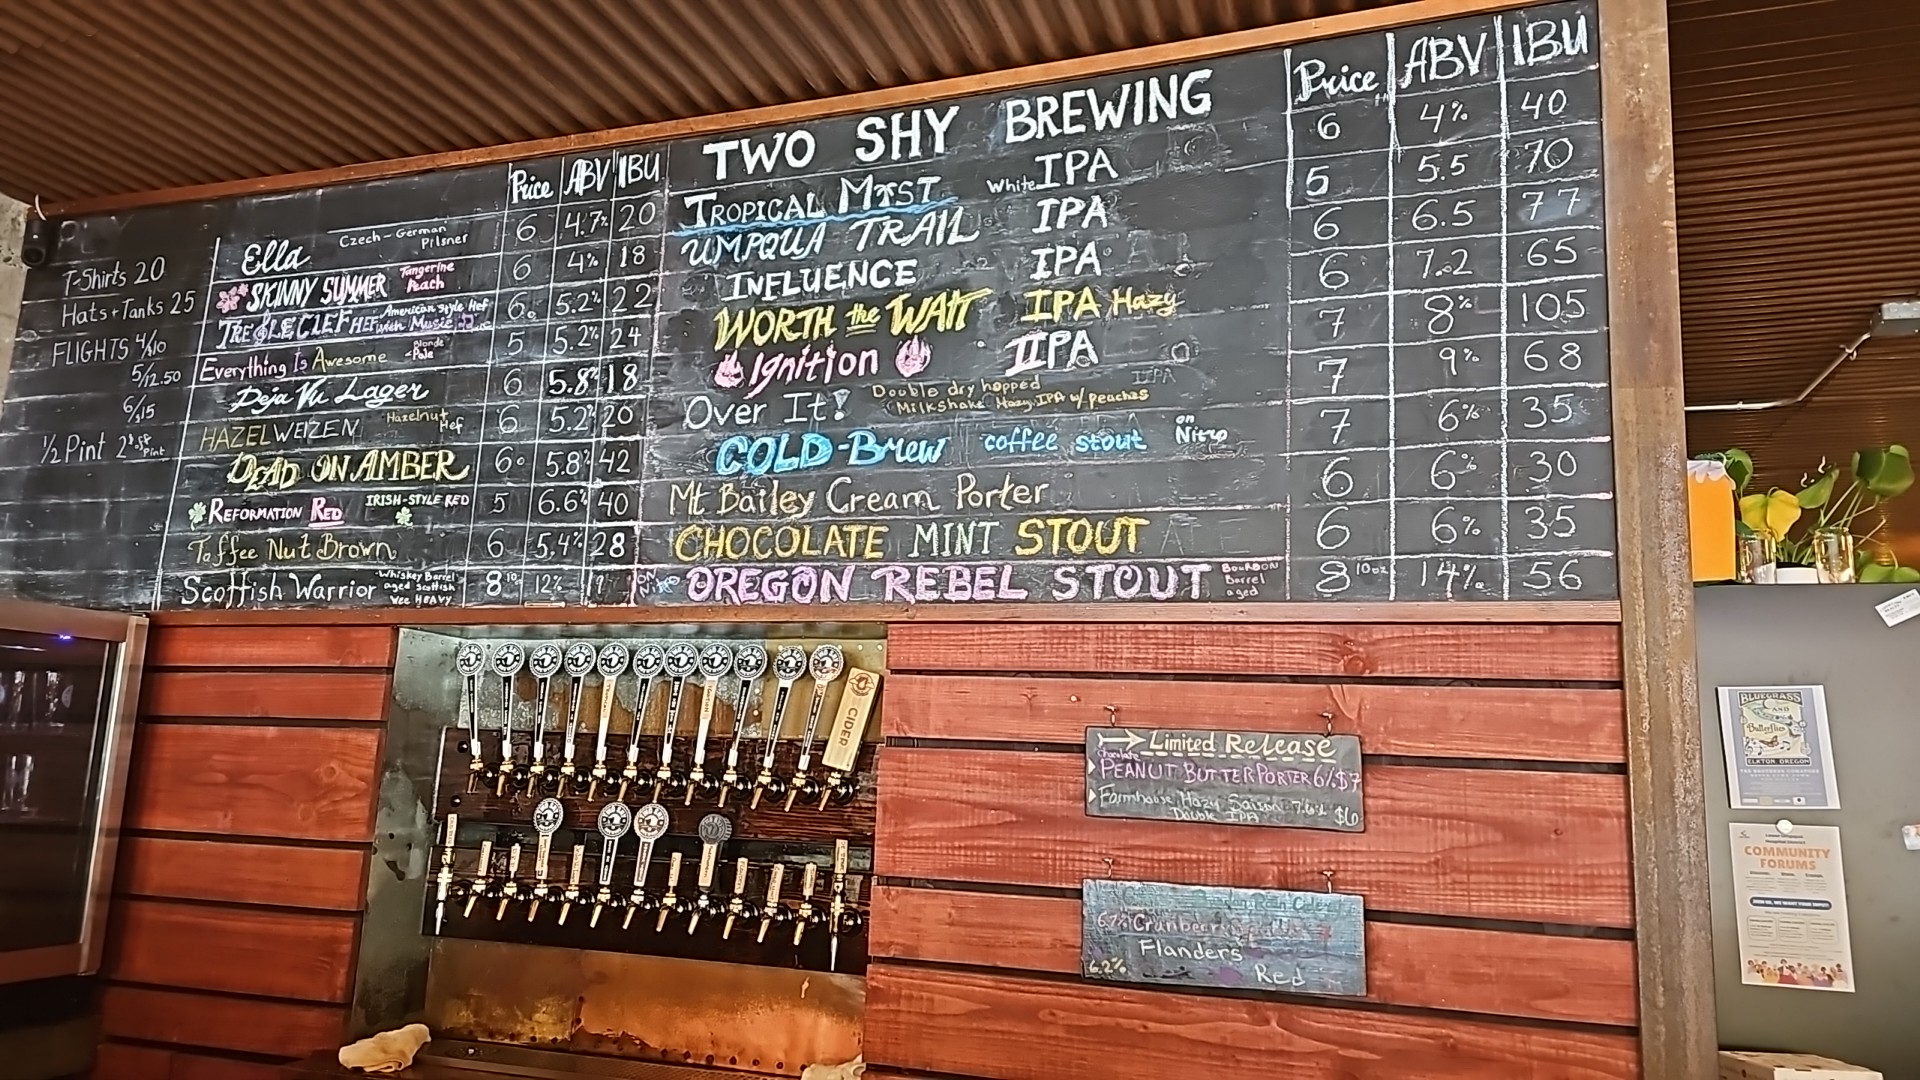 T-Shirts 20
Hats + Tanks 25
FLIGHTS 4/$10
5/12.50
6/$15
1/2 Pint
Price ABV IBU
Ella Czech-German Pilsner 6 4.7% 20
SKINNY SUMMER Tangerine Peach 6 4% 18
TREBLE CLEF HEF American Style Hef with Music 6 5.2% 22
Everything Is Awesome Blonde Pale 5 5.2% 24
Deja Vu Lager 6 5.8% 18
HAZELWEIZEN Hazelnut Hef 6 5.2% 20
DEAD ON AMBER 6 5.8% 42
REFORMATION RED IRISH-STYLE RED 5 6.6% 40
Toffee Nut Brown 6 5.4% 28
Scottish Warrior Whiskey Barrel aged Scottish Wee HEAVY 8 12%
TWO SHY BREWING
Price ABV IBU
TROPICAL MIST White IPA 6 4% 40
UMPQUA TRAIL IPA 5 5.5 70
INFLUENCE IPA 6 6.5 77
WORTH the WAIT IPA Hazy 6 7.2 65
Ignition IIPA 7 8% 105
Over It! Double dry hopped Milkshake Hazy IPA w/ peaches 7 9% 68
COLD-Brew coffee stout on Nitro 7 6% 35
Mt Bailey Cream Porter 6 6% 30
CHOCOLATE MINT STOUT 6 6% 35
ON OREGON REBEL STOUT BOURBON Barrel aged 8 10oz 14% 56
CIDER
Limited Release
Chocolate
PEANUT BUTTER PORTER 6% $7
Farmhouse Hazy Saison 7.6% $6
Double IPA
6.7% Cranberry
Flanders
6.2% Red
BLUEGRASS
AND
Butterflies
ELKTON, OREGON
COMMUNITY
FORUMS